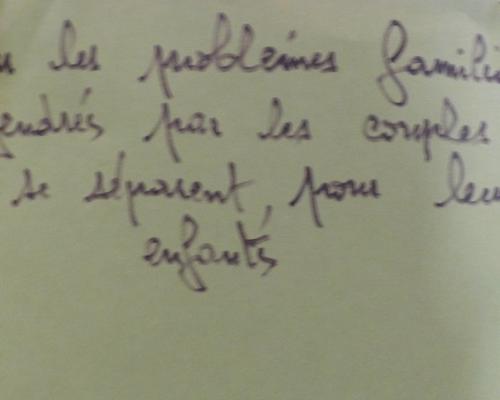 les problèmes famili
endrés par les couples
se séparent, pour leu
enfants